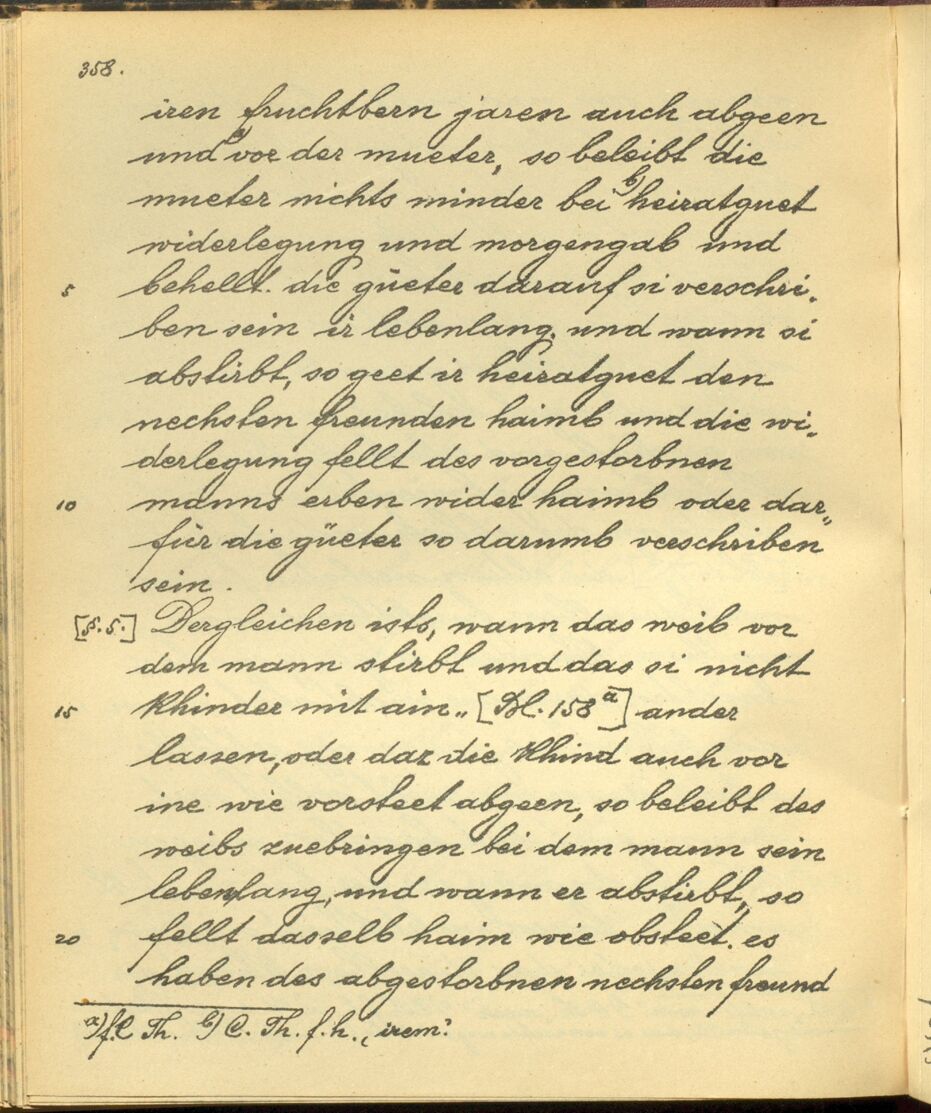 358.
iren fruchtbern jaren auch abgeen
und a) vor der mueter, so beleibt die
mueter nichts minder bei b) heiratguet
widerlegung und morgengab und
5 behellt. die güeter darauf si verschri„
ben sein ir lebenlang. und wann si
abstirbt, so geet ir heiratguet den
nechsten freunden haimb und die wi„
derlegung fellt des vorgestorbnen
10 manns erben wider haimb oder dar„
für die güeter so darumb verschriben
sein.
[§. 5.] Dergleichen ists, wann das weib vor
dem mann stirbt und das si nicht
15 khinder mit ain„ [Bl. 158 a] ander
lassen, oder daz die khind auch vor
ine wie vorsteet abgeen, so beleibt des
weibs zuebringen bei dem mann sein
lebenlang, und wann er abstirbt, so
20 fellt dasselb haim wie obsteet. es
haben des abgestorbnen nechsten freund
a) f. C Th. b) C. Th. f. h. „irem“.